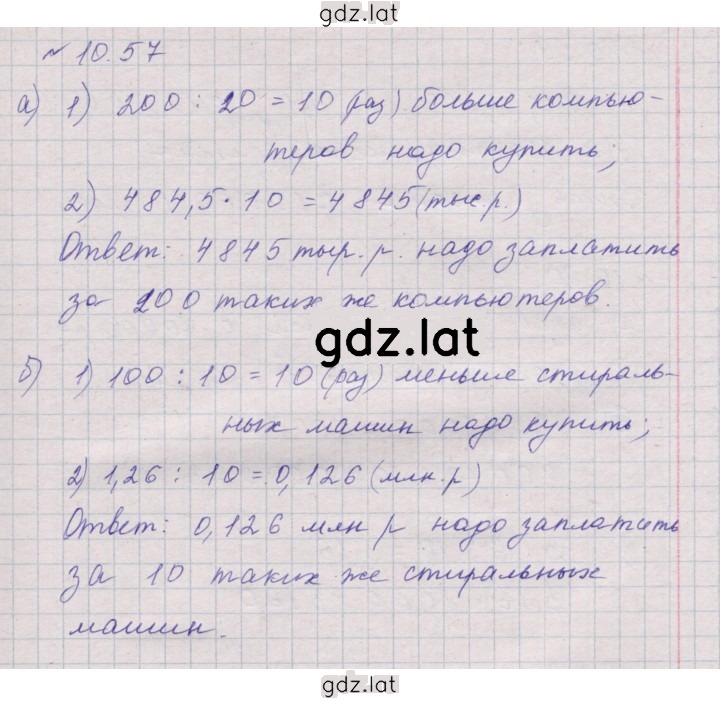 gdz.lat
№ 10.57
а) 1) 200 : 20 = 10 (раз) больше компью-
теров надо купить;
2) 484,5 · 10 = 4845 (тыс.р.)
Ответ: 4845 тыр. р. надо заплатить
за 200 таких же компьютеров.
gdz.lat
б) 1) 100 : 10 = 10 (раз) меньше стираль-
ных машин надо купить;
2) 1,26 : 10 = 0,126 (млн.р)
Ответ: 0,126 млн р надо заплатить
за 10 таких же стиральных
машин.
gdz.lat